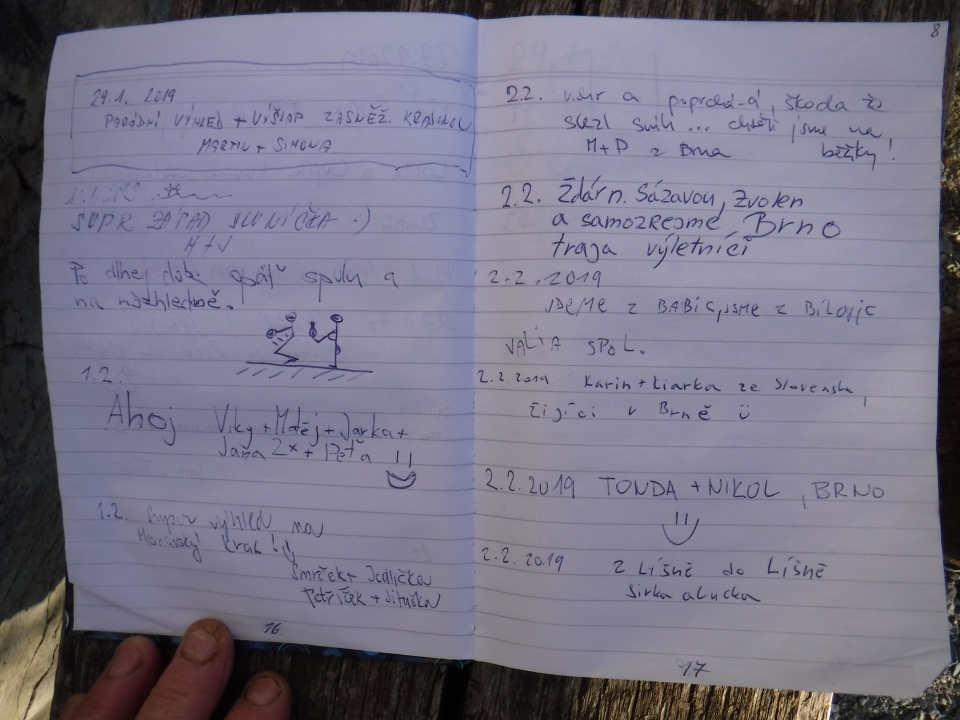 29.1. 2019
PARÁDNÍ VÝHLED + VÝŠLAP ZASNĚŽ. KRAJINOU
MARTIN + SIMONA
SUPR ZÁPAD SLUNÍČKA :)
M+V
Po dlhej dobe opäť spolu a
na
1.2.
Ahoj Viky + Matěj + Jarka +
Jaňa 2x + Peťa
1.2. Super výhled na
Moravský kras!
Smrček + Jedlička
Petříček + Jituška
16
8
2.2. vichr a poprchá-á, škoda že
slezl sníh... chtěli jsme na
běžky!
M+P z Brna
2.2. Žďár n. Sázavou, Zvolen
a samozrejme Brno
traja výletníci
2.2.2019
JDEME z BABIC, JSME z Bílovic
SPOL.
2.2.2019 Karin + Kiarka ze Slovenska,
žijící v Brně ü
2.2.2019 TONDA + NIKOL, BRNO
2.2.2019 z Líšně do Líšně
Jirka a Lucka
17